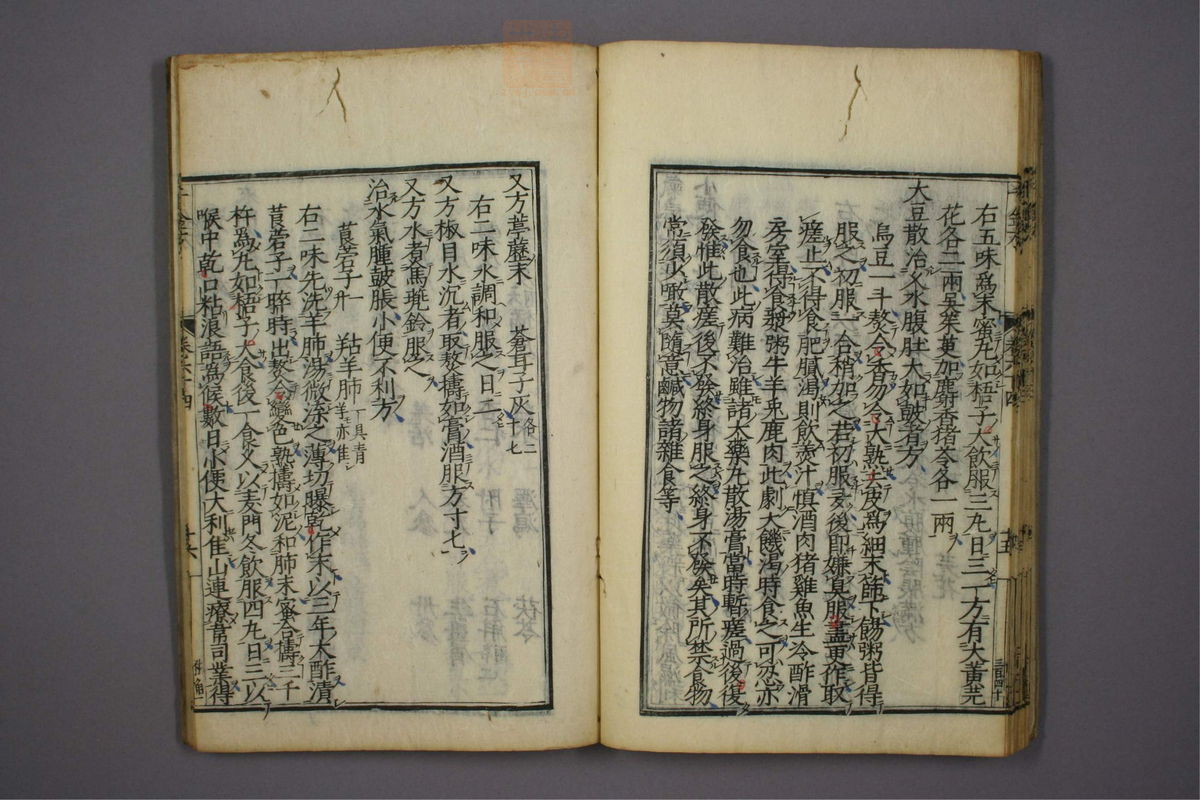 右五味爲末蜜丸如梧子大飲服三丸日三一方有大黄芫
花各二兩呉茱萸加麝香猪苓各一兩
大豆散治久水腹肚大如皷者方
烏豆一斗熬令香勿令大熟去皮爲細末篩下餳粥皆得
服之初服一合稍加之若初服多後即嫌臭服盡更作取
瘥止不得食肥膩渇則飲羹汁慎酒肉猪雞魚生冷酢滑
房室得食漿粥牛羊兎鹿肉此劇大饑渇時食之可忍亦
勿食也此病難治雖諸大藥丸散湯膏當時暫瘥過後復
發惟此散瘥後不發終身服之終身不發矣其所禁食物
常須少噉莫隨意鹹物諸雜食等
又方葶藶末 蒼耳子灰各二十七
右二味水調和服之日二
又方椒目水沉者取熬擣如膏酒服方寸七
又方水煮馬兠鈴服之
治水氣腫皷脹小便不利方
莨菪子一升 羖羊肺一具青羊亦佳
右二味先洗羊肺湯微渫之薄切曝乾作末以三年大酢漬
莨菪子一晬時出熬令變色熟擣如泥和肺末蜜合擣三千
杵爲丸如梧子大食後一食久以麦門冬飲服四丸日三以
喉中乾口粘浪語爲候數日小便大利佳山連療韋司業得